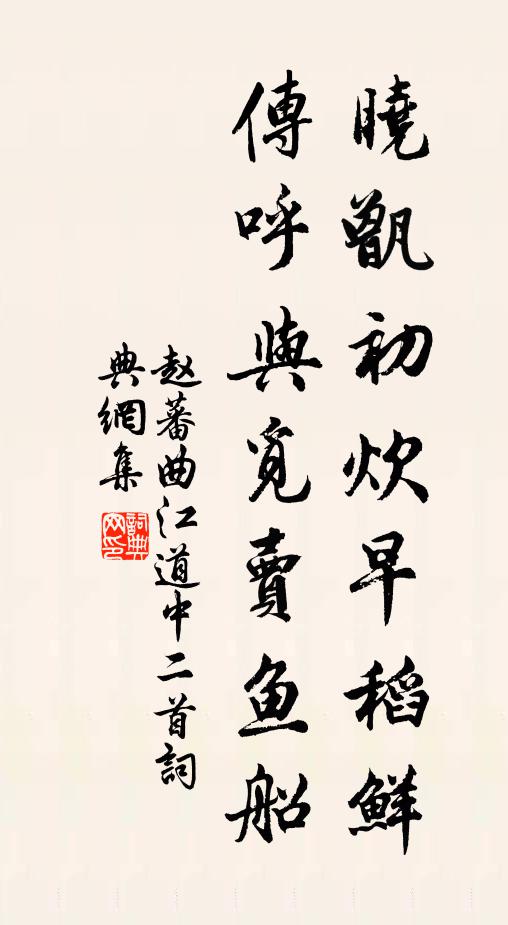 曉甑初炊早稻鮮
傳呼與覓賣魚船
赵蕃曲江道中二首詞
典網集
詞典
网印